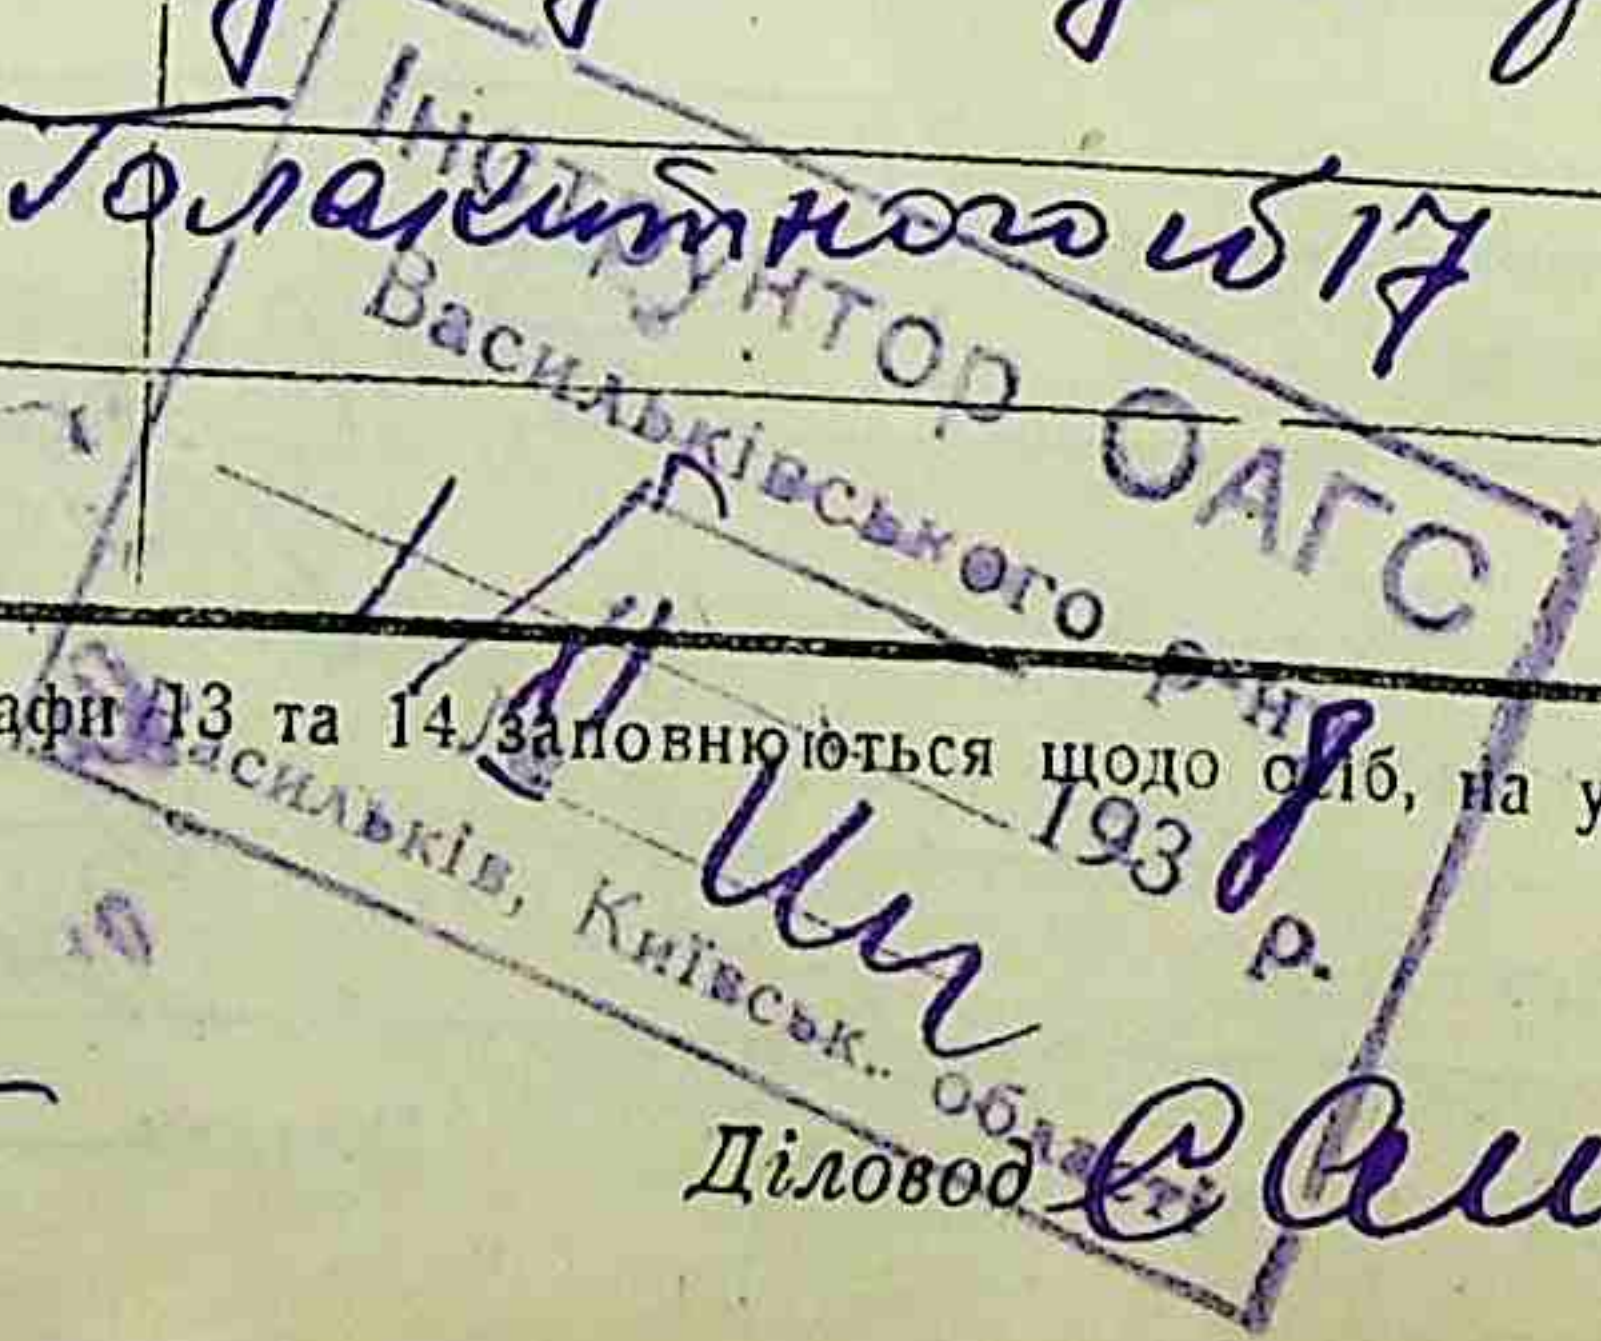 Голакитного №17
Інструктор ОАГС
Васильківського р-ну
193 8 р.
Васильків, Київськ.. області
афи 13 та 14 заповнюються щодо осіб, на у
Діловод